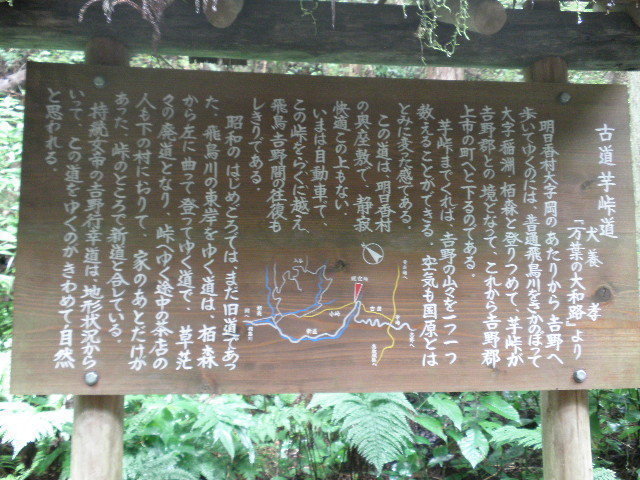 古道芋峠道
犬養 孝
「万葉の大和路」より
明日香村大字岡のあたりから、吉野へ
歩いてゆくのには、昔道飛鳥川をさかのぼって
大字稲渕、栢森と登りつめて、芋峠が
吉野郡との境となって、これから吉野郡
上市の町へと下るのである。
芋峠までくれば、吉野の山々を一つ一つ
教えることができる。空気も国原とは
とみに変った感である。
この道は、明日香村
の奥座敷で、静寂
快適この上もない。
いまは自動車で、
この峠をらくに越え、
飛鳥吉野間の往復も
しきりである。
昭和のはじめごろではまだ旧道であっ
た。飛鳥川の東岸をゆく道は、栢森
から左に曲って登ってゆく道で、草茫
々の廃道となり、峠へゆく途中の茶店の
人も下の村におりて、家のあとだけが
あった。峠のところで新道と合している。
持統女帝の吉野行幸道は、地形状況から
いって、この道をゆくのがきわめて自然
と思われる。